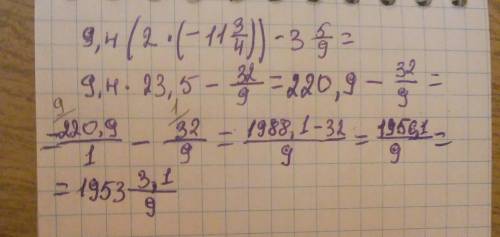 9,4(2·(-11 3/4)) - 3 5/9 =
9,4·23,5 - 32/9 = 220,9 - 32/9 =
= 9/ 220,9/1 - 1/ 32/9 = 1988,1-32/9 = 1956,1/9 =
= 1953 3,1/9